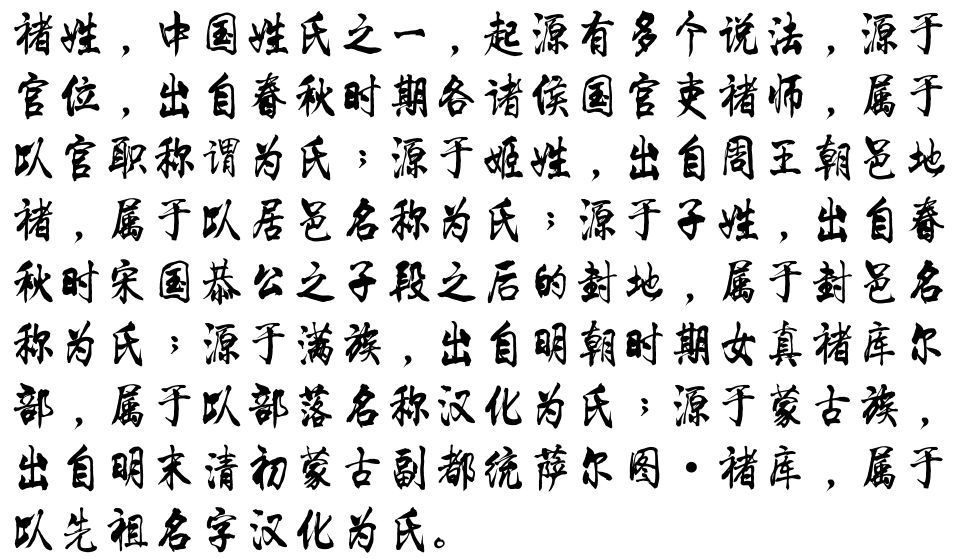 褚姓，中国姓氏之一，起源有多个说法，源于
官位，出自春秋时期各诸侯国官吏褚师，属于
以官职称谓为氏；源于姬姓，出自周王朝邑地
褚，属于以居邑名称为氏；源于子姓，出自春
秋时宋国恭公之子段之后的封地，属于封邑名
称为氏；源于满族，出自明朝时期女真褚库尔
部，属于以部落名称汉化为氏；源于蒙古族，
出自明末清初蒙古副都统萨尔图·褚库，属于
以先祖名字汉化为氏。